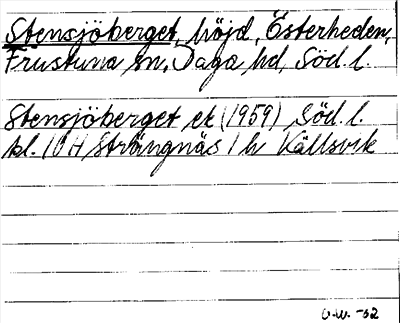 Stensjöberget, höjd, Österheden,
Frustuna sn, Daga hd, Söd. l.
Stensjöberget ek (1959) Söd. l.
bl. 10 H Strängnäs 1 h Källsvik
O.W. -62